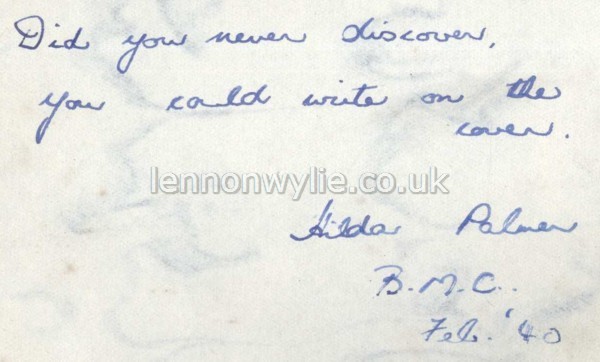 Did you never discover,
you could write on the
cover.
lennonwylie.co.uk
Hilda Palmer
B.M.C.
Feb. '40